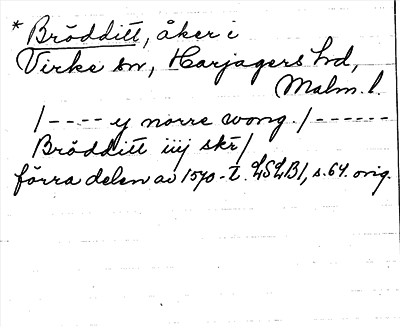 * Bröditt, åker i
Virke sn, Harjagers hd,
Malm. l.
/---- y nörre wong. /------
Bröditt iiij skr/
förra delen av 1570-t. LSLB1, s. 64. orig.